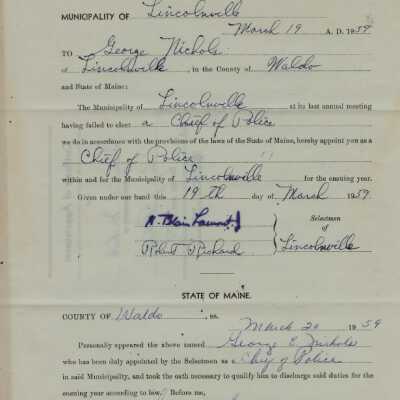 MUNICIPALITY OF Lincolnville
March 19 A. D. 1959
TO George Nichols
of Lincolnville, in the County of Waldo
and State of Maine:
The Municipality of Lincolnville at its last annual meeting
having failed to elect a Chief of Police
we do in accordance with the provisions of the laws of the State of Maine, hereby appoint you as a
Chief of Police
within and for the Municipality of Lincolnville for the ensuing year.
Given under our hand this 19th day of March 1959.
Selectmen
Robert Richard of
Lincolnville
STATE OF MAINE.
COUNTY OF Waldo, ss.
March 20 1959
Personally appeared the above named George E Nichols
who has been duly appointed by the Selectmen as a Chief of Police
in said Municipality, and took the oath necessary to qualify him to discharge said duties for the
ensuing year according to law. Before me,